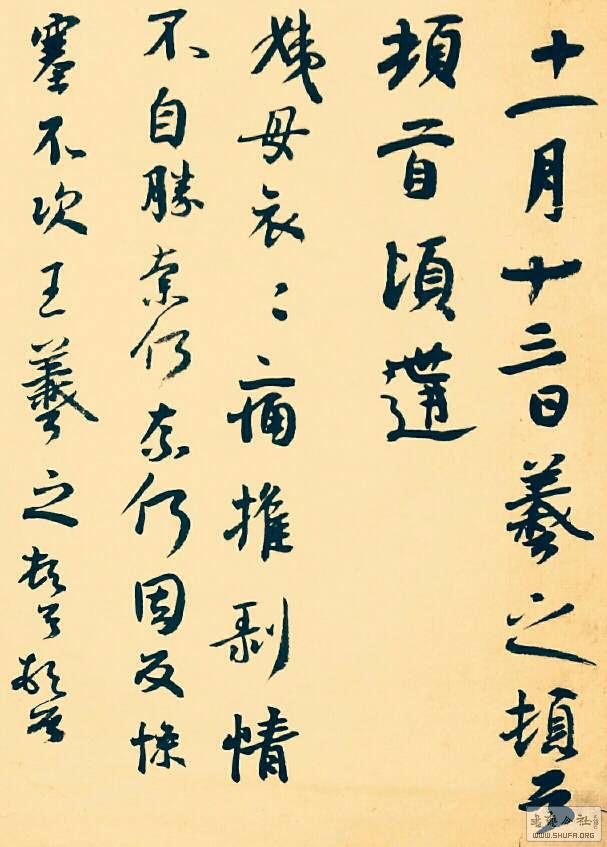 十一月十三日羲之頓首
頓首頃遘
姨母哀〻痛摧剥情
不自勝奈何奈何因反慘
塞不次王羲之頓首頓首
WWW.SHUFA.ORG